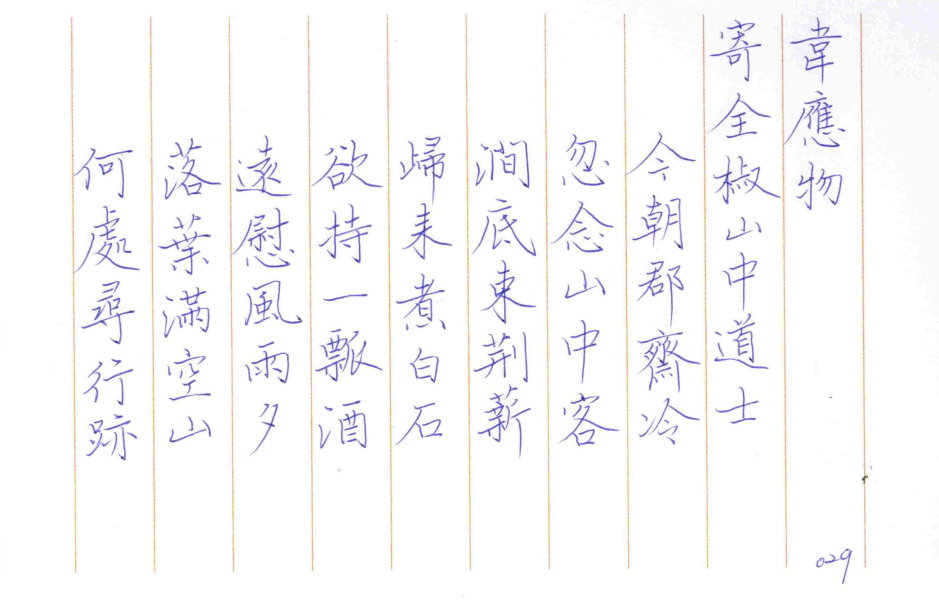 韋應物
寄全椒山中道士
今朝郡齋冷
忽念山中客
澗底束荆薪
歸来煮白石
欲持一瓢酒
遠慰風雨夕
落葉滿空山
何處尋行跡
029